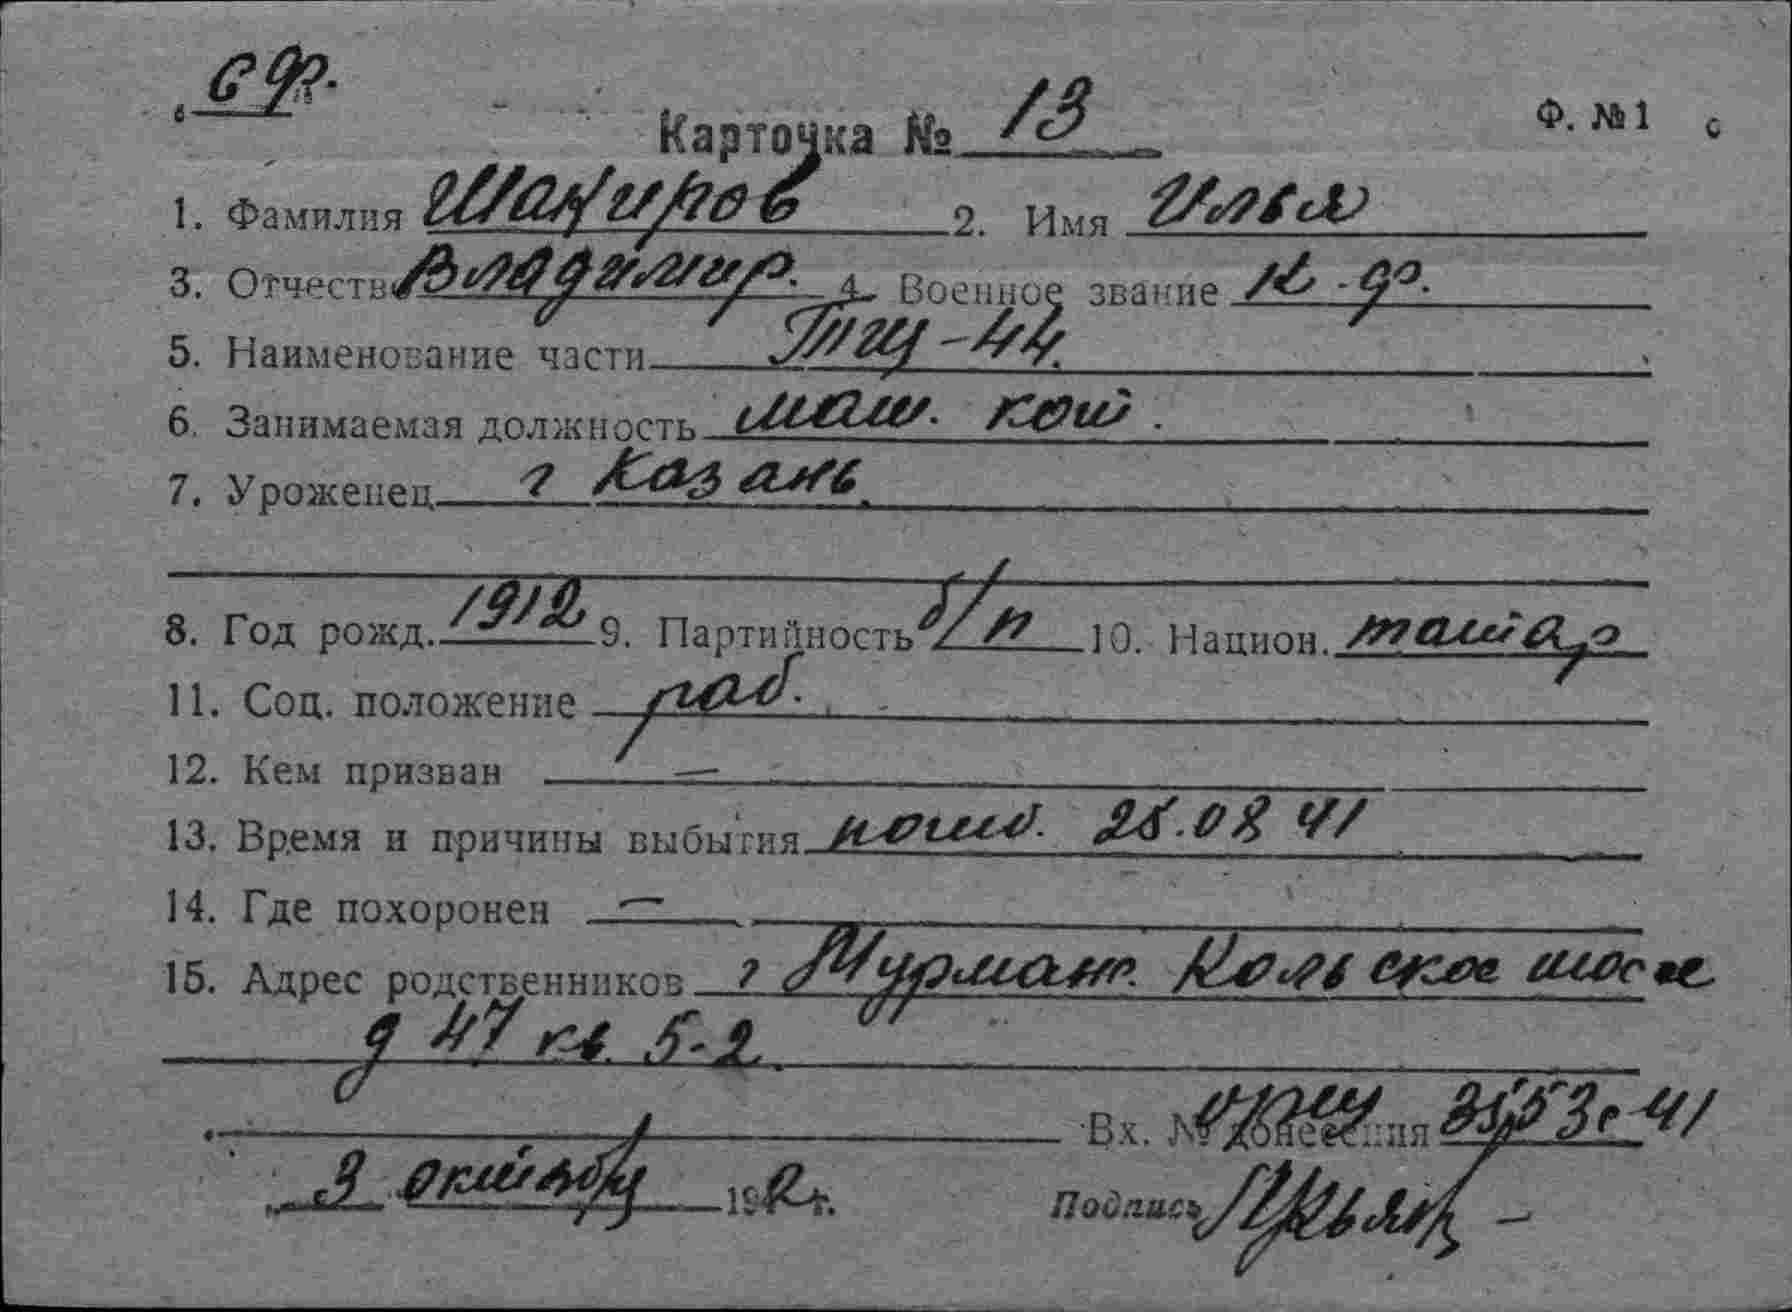 с ф.
Карточка № 13
Ф. №1 с
1. Фамилия Шакиров 2. Имя Илья
3. Отчество Владимир. 4. Военное звание к.ф.
5. Наименование части Тщ-44.
6. Занимаемая должность маш. кот.
7. Уроженец г Казань.
8. Год рожд. 1912 9. Партийность б/п 10. Национ. татар
11. Соц. положение раб.
12. Кем призван —
13. Время и причины выбытия погиб. 25.08 41
14. Где похоронен —
15. Адрес родственников г Мурманс. Кольское шоссе
д 47 кв. 5-2.
Вх. № донесения 3553с-41
3 октября 192г.
Подпись